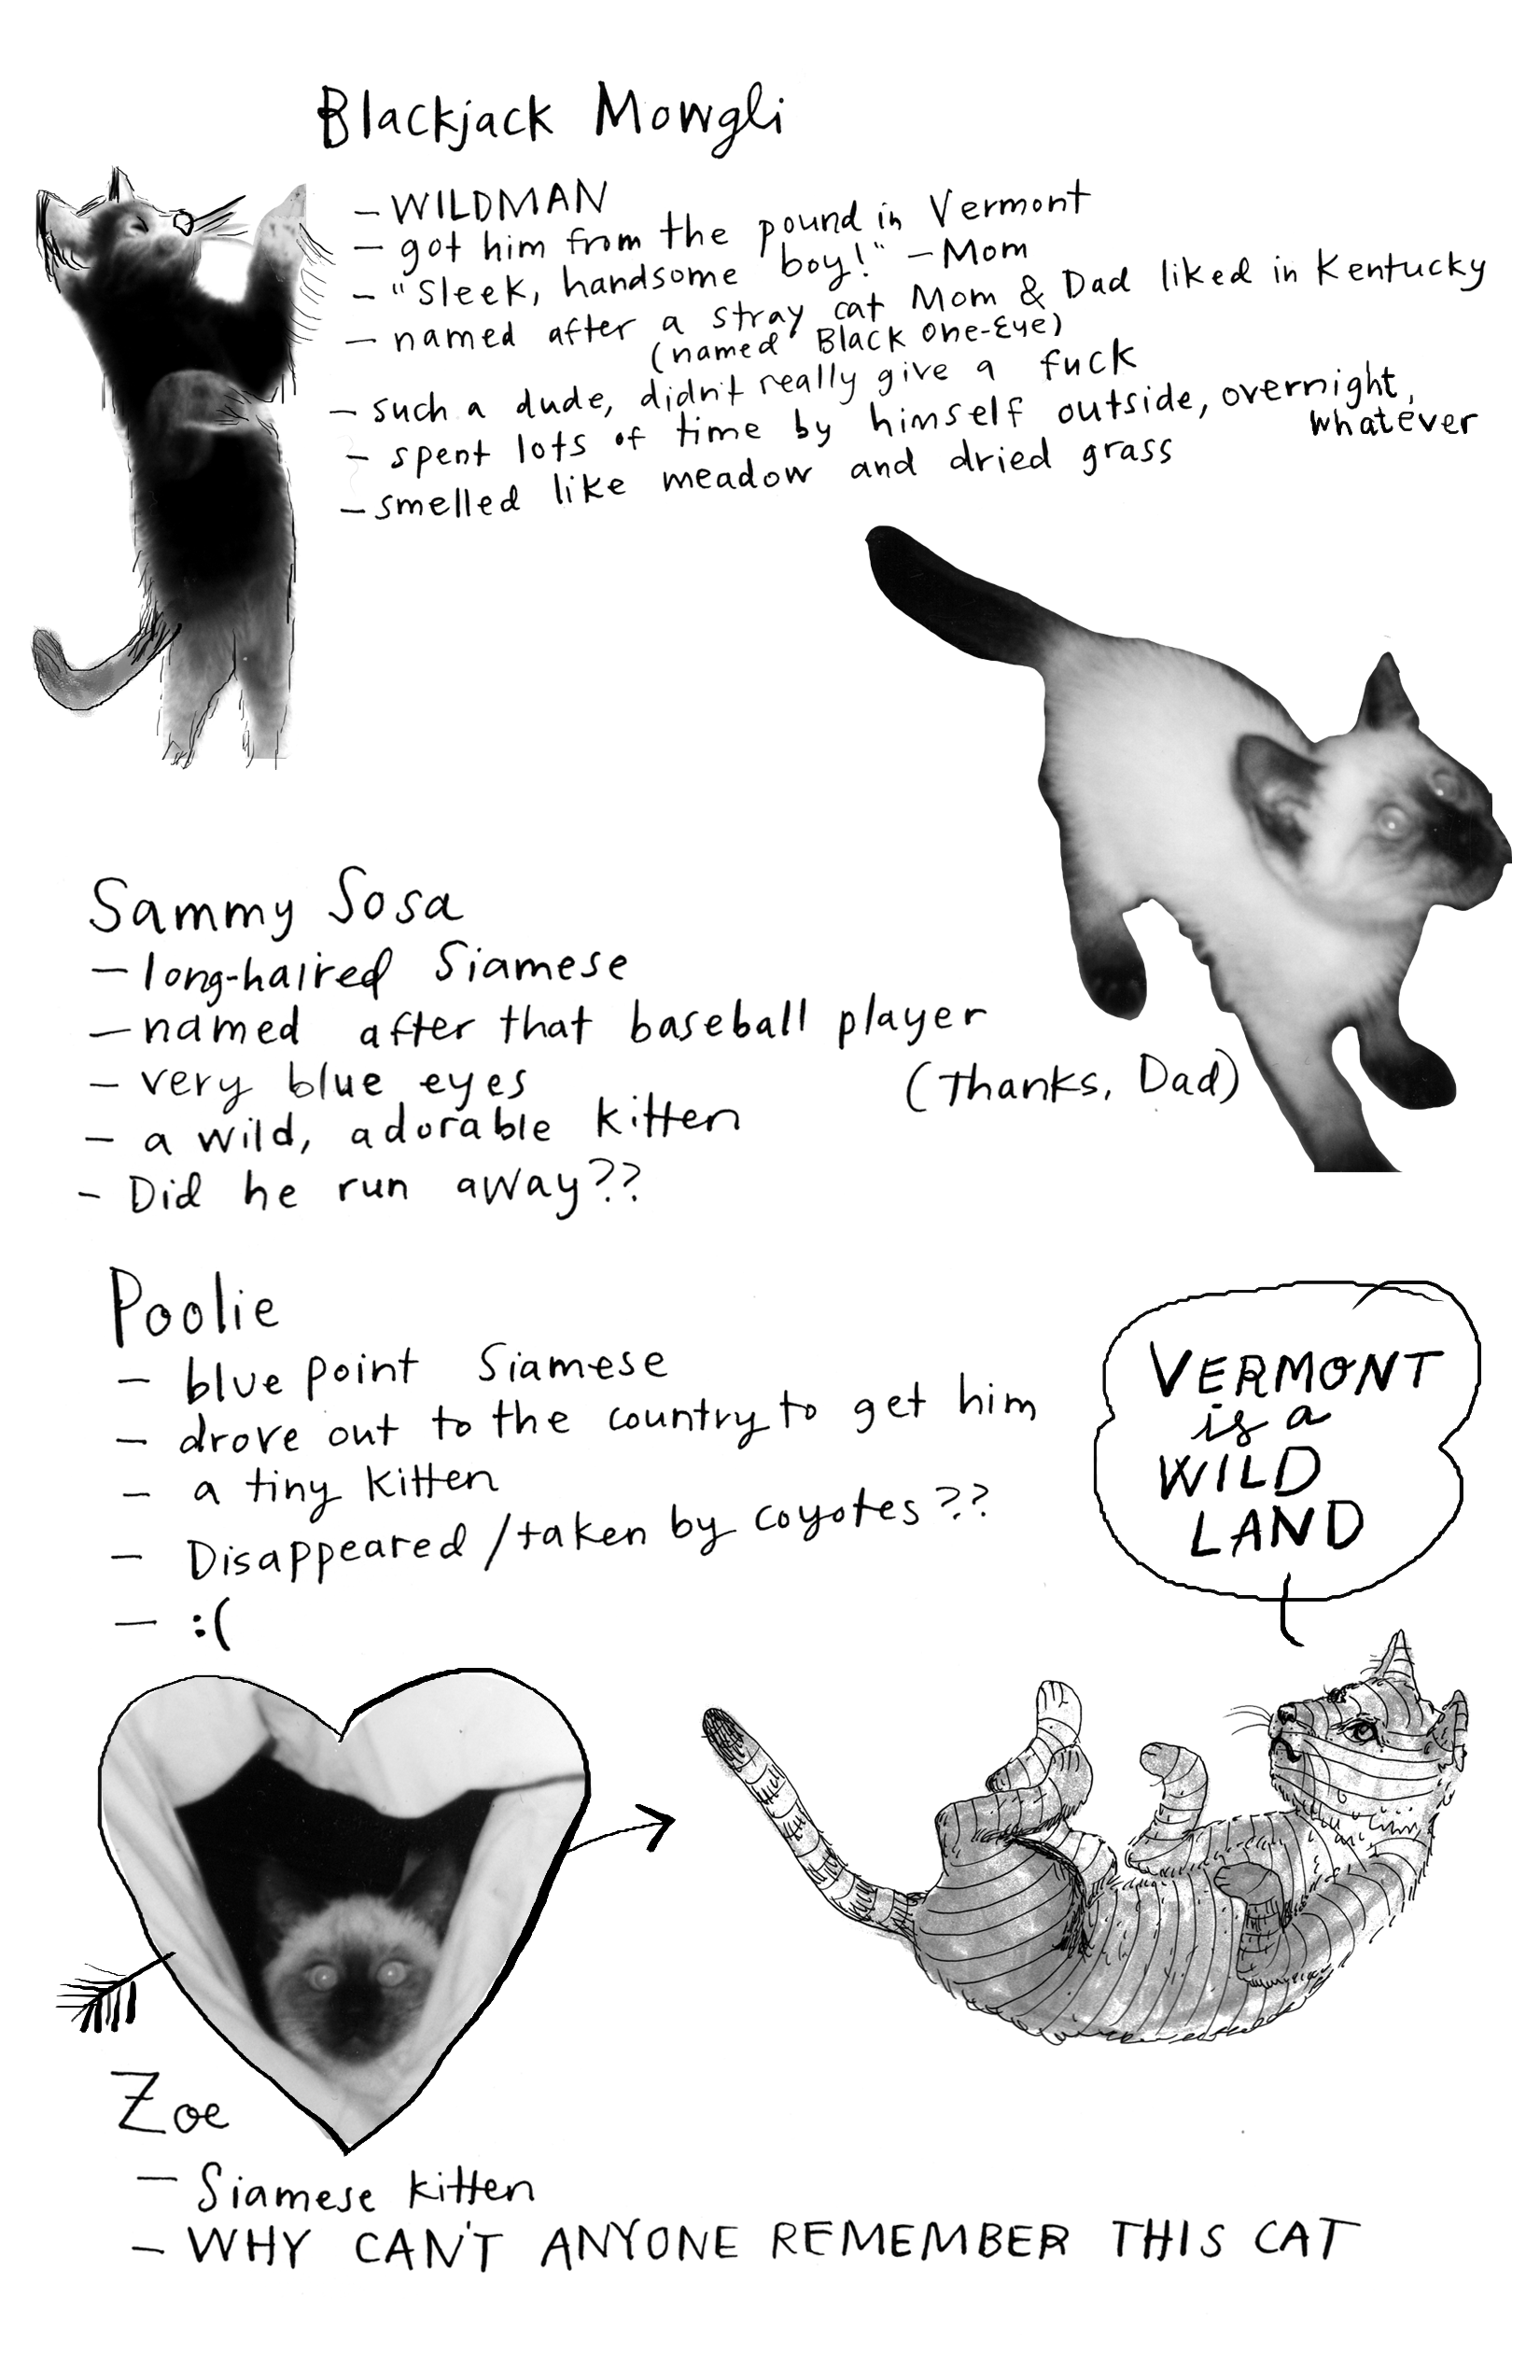 Blackjack Mowgli
- WILDMAN
- got him from the pound in Vermont
- "Sleek, handsome boy!" - Mom
- named after a stray cat Mom & Dad liked in Kentucky
(named Black One-Eye)
- such a dude, didn't really give a fuck
- spent lots of time by himself outside, overnight,
whatever
- smelled like meadow and dried grass
Sammy Sosa
- long-haired Siamese
- named after that baseball player
(Thanks, Dad)
- very blue eyes
- a wild, adorable kitten
- Did he run away??
Poolie
- blue point Siamese
- drove out to the country to get him
- a tiny kitten
- Disappeared / taken by coyotes??
- :(
VERMONT
is a
WILD
LAND
Zoe
- Siamese kitten
- WHY CAN'T ANYONE REMEMBER THIS CAT